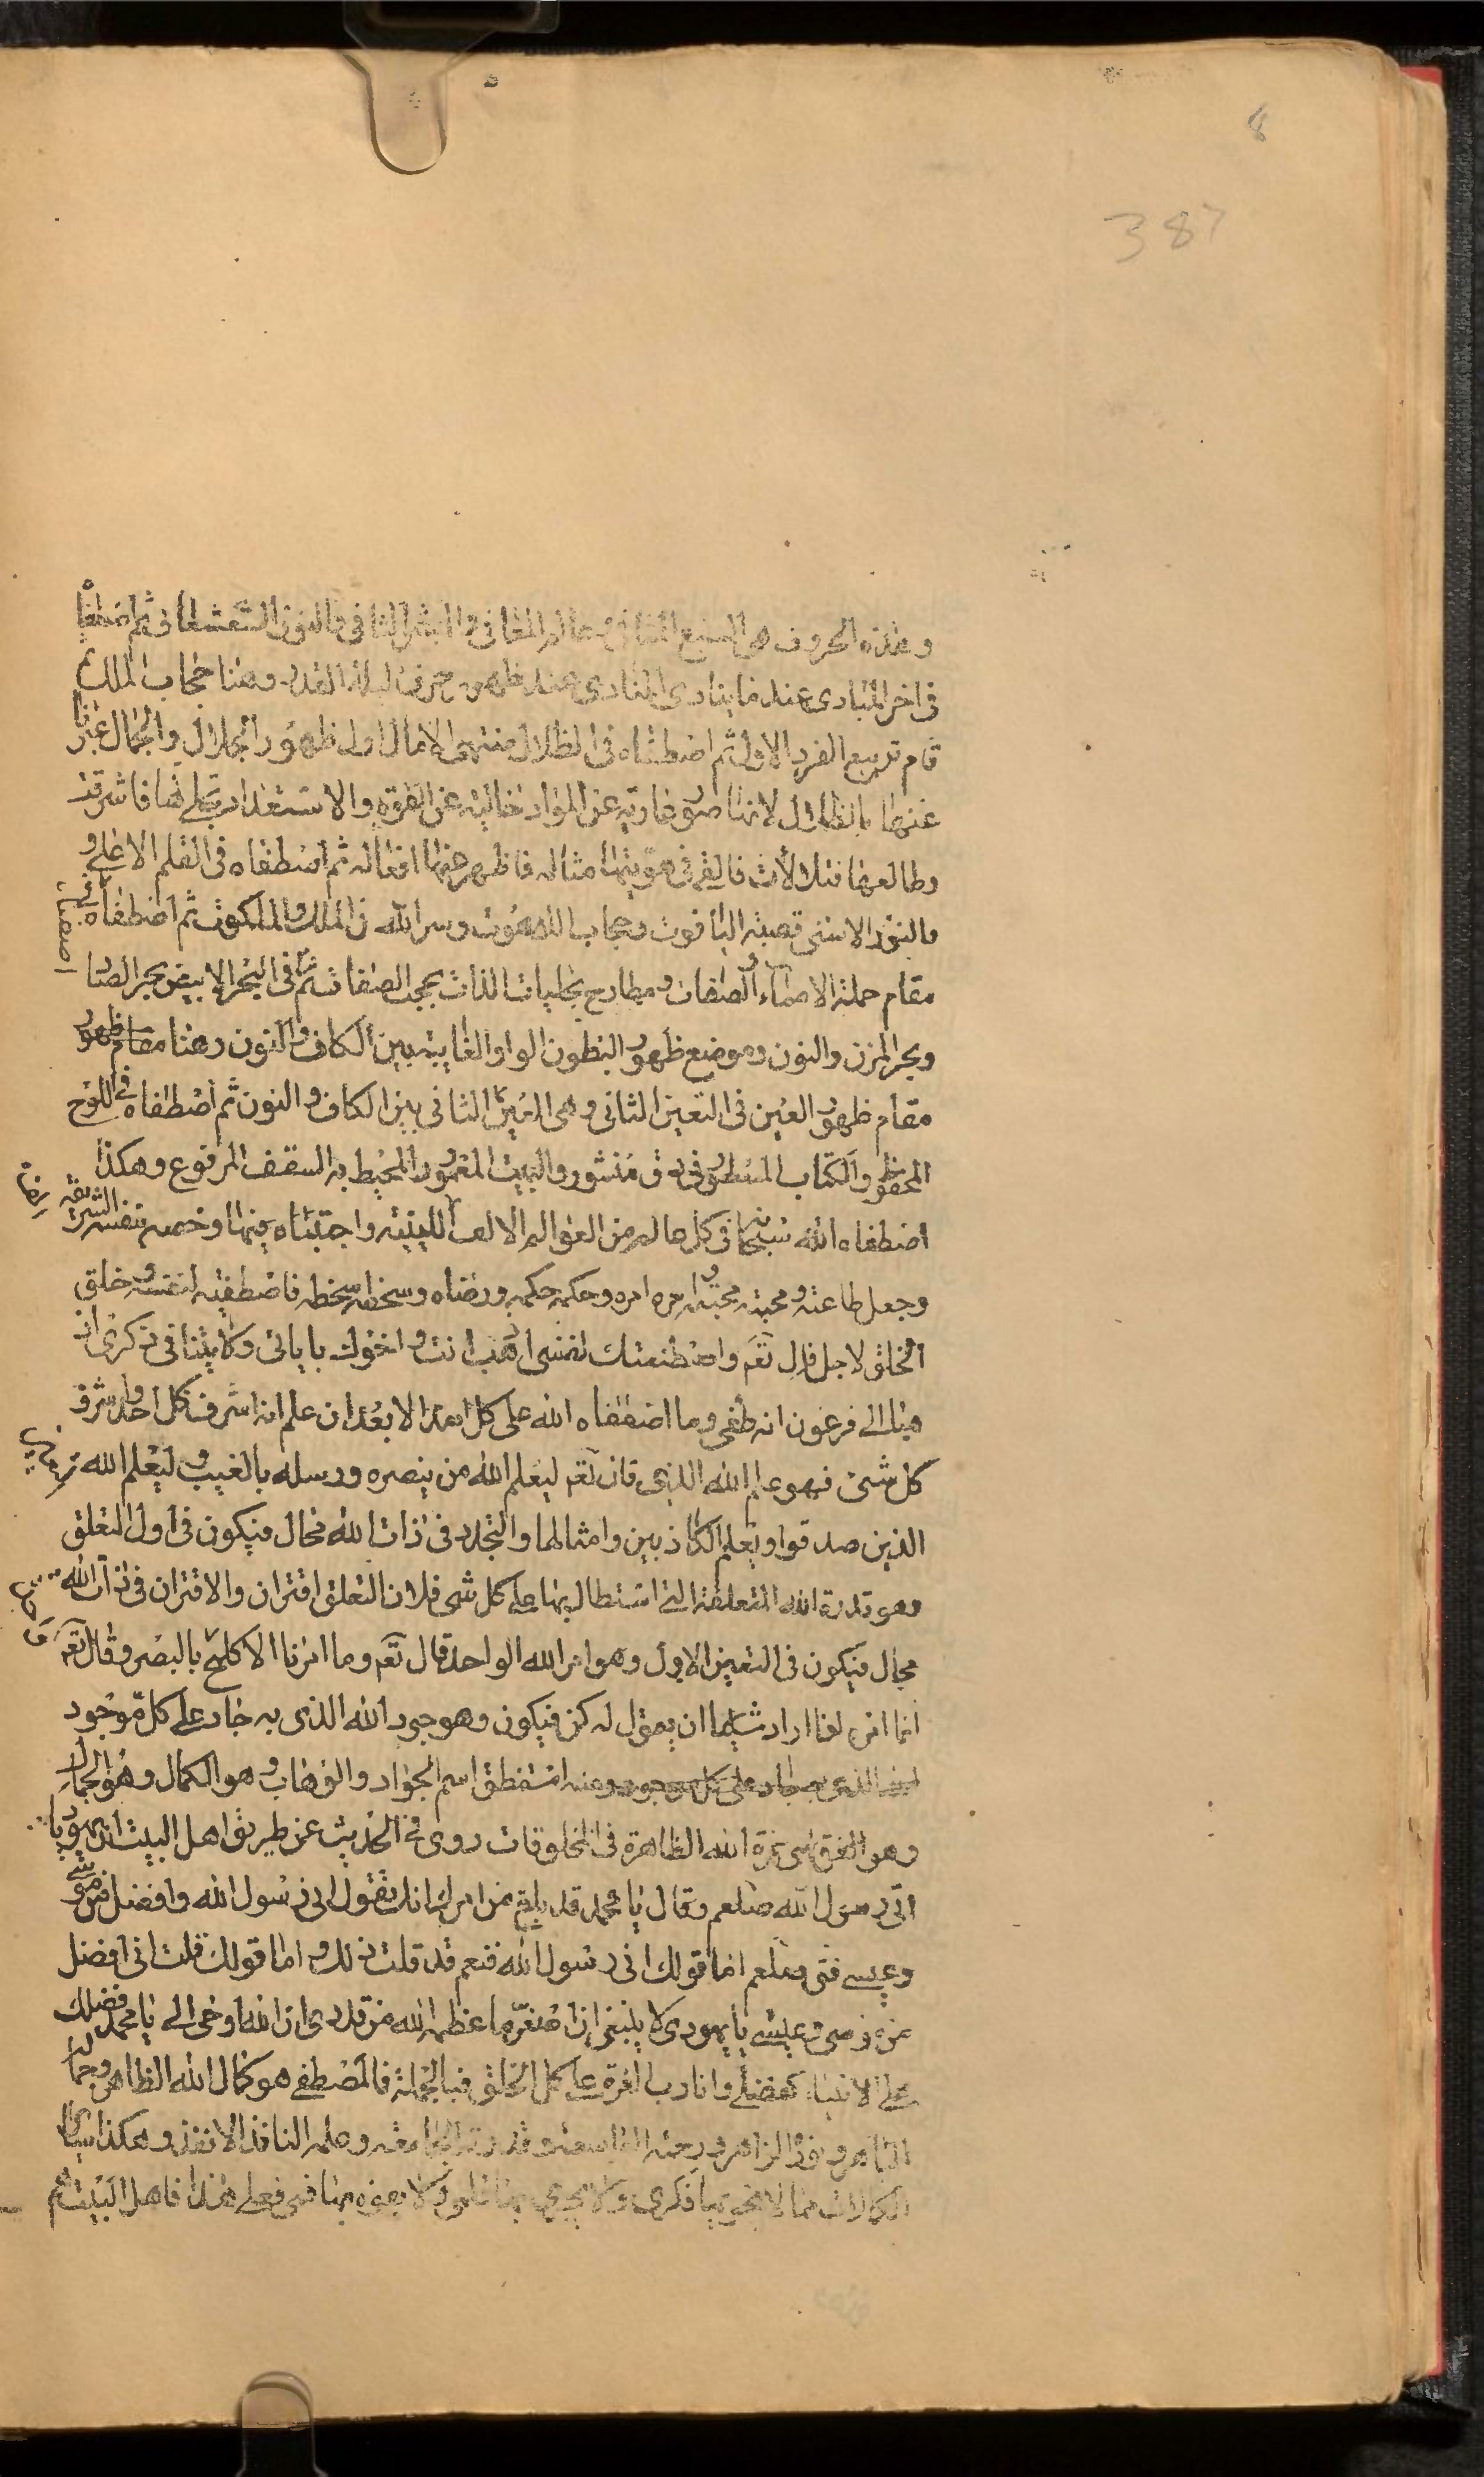 8
387
وهذه الحروف هى السبع المثانى عالم المعانى والبشر الثانى والنون الشعشعانى ثم اصطفا
فى اخر المبادى عند ما ينادى المنادى عند ظهور حرف ليلة القدر وهنا حجاب الملك
قام تربيع الفرد الاول ثم اصطفاه فى الظلال منتهى الامال اول ظهور الجلال والجمال عبرنا
عنها بالظلال لانها صور عارية عن المواد خالية عن القوة والاستعداد تجلى لها فاشرقت
وطالعها فتلألأت فالقى فى هويتها مثاله فاظهر عنها افعاله ثم اصطفاه فى القلم الاعلى و
والنور الاسنى قصبة الياقوت وحجاب اللاهوت وسر الله فى الملك والملكوت ثم اصطفاه فى
مقام حملة الاسماء والصفات ومطارح تجليات الذات بحجب الصفات ثم فى البحر الابيض بحر الصاد
وبحر المزن والنون وموضع ظهور البطون الواو الغايبة بين الكاف والنون وهنا مقام ظهور
مقام ظهور العين فى التعين الثانى وهى العين الثانى بين الكاف والنون ثم اصطفاه فى اللوح
المحفوظ والكتاب المسطور فى رق منشور والبيت المعمور المحيط به السقف المرفوع وهكذا
اصطفاه الله سبحانه فى كل عالم من العوالم الالف اللينية واجتباه بينها وخصه بنفسه الشريفة
وجعل طاعته ومحبته محبته وامره امره وحكمه حكمه ورضاه وسخطه سخطه فاصطفيته لنفسه وخلق
الخلق لاجل قال تعم واصطنعتك لنفسى اذهب انت واخوك باياتى ولا تنيا فى ذكرى اذ
هبا الى فرعون انه طغى وما اصطفاه الله على كل احد الا بعد ان علم انه اشرف كل احد واشرف
كل شئ فهو علم الله الذى قال تعم ليعلم الله من ينصره ورسله بالغيب وليعلم الله
الذين صدقوا ويعلم الكاذبين وامثالها والتجدد فى ذات الله محال فيكون فى اول التعلق
وهو قدرة الله المتعلقة التى استطال بها على كل شئ فلان التعلق اقتران والاقتران فى ذات الله
محال فيكون فى التعين الاول وهو امر الله الواحد قال تعم وما امرنا الا كلمح بالبصر وقال تعم
انما امره اذا اراد شيئا ان يقول له كن فيكون وهو جود الله الذى به جاد على كل موجود
الذى جاد على كل موجود ومنه استنطق اسم الجواد والوهاب وهو الكمال وهو الجمال
وهو الفرق اى عزة الله الظاهرة فى المخلوقات روى فى الحديث عن طريق اهل البيت ان يهوديا
اتى رسول الله صلعم وقال يا محمد قد بلغ من امرك انك تقول انى رسول الله وافضل من موسى
وعيسى فقال صلعم اما قولك انى رسول الله فنعم قد قلت ذلك واما قولك قلت انى افضل
من موسى وعيسى يا يهودى لا ينبغى ان اصغر ما عظم الله من قدرى ان الله اوحى الى يا محمد فضلك
على الانبياء كفضلى وانا رب العزة على كل الخلق فبالجملة فالمصطفى هو كمال الله الظاهر وجماله
الباهر ونوره الزاهر ورحمته الواسعة وقدرته الجامعة وعلمه النافذ الانفذ وهكذا ساير
الكمالات مما لا فكرى ولا يجرى بها قلمى ولا يفوه بها فمى فعلى هذا فاهل البيت هم